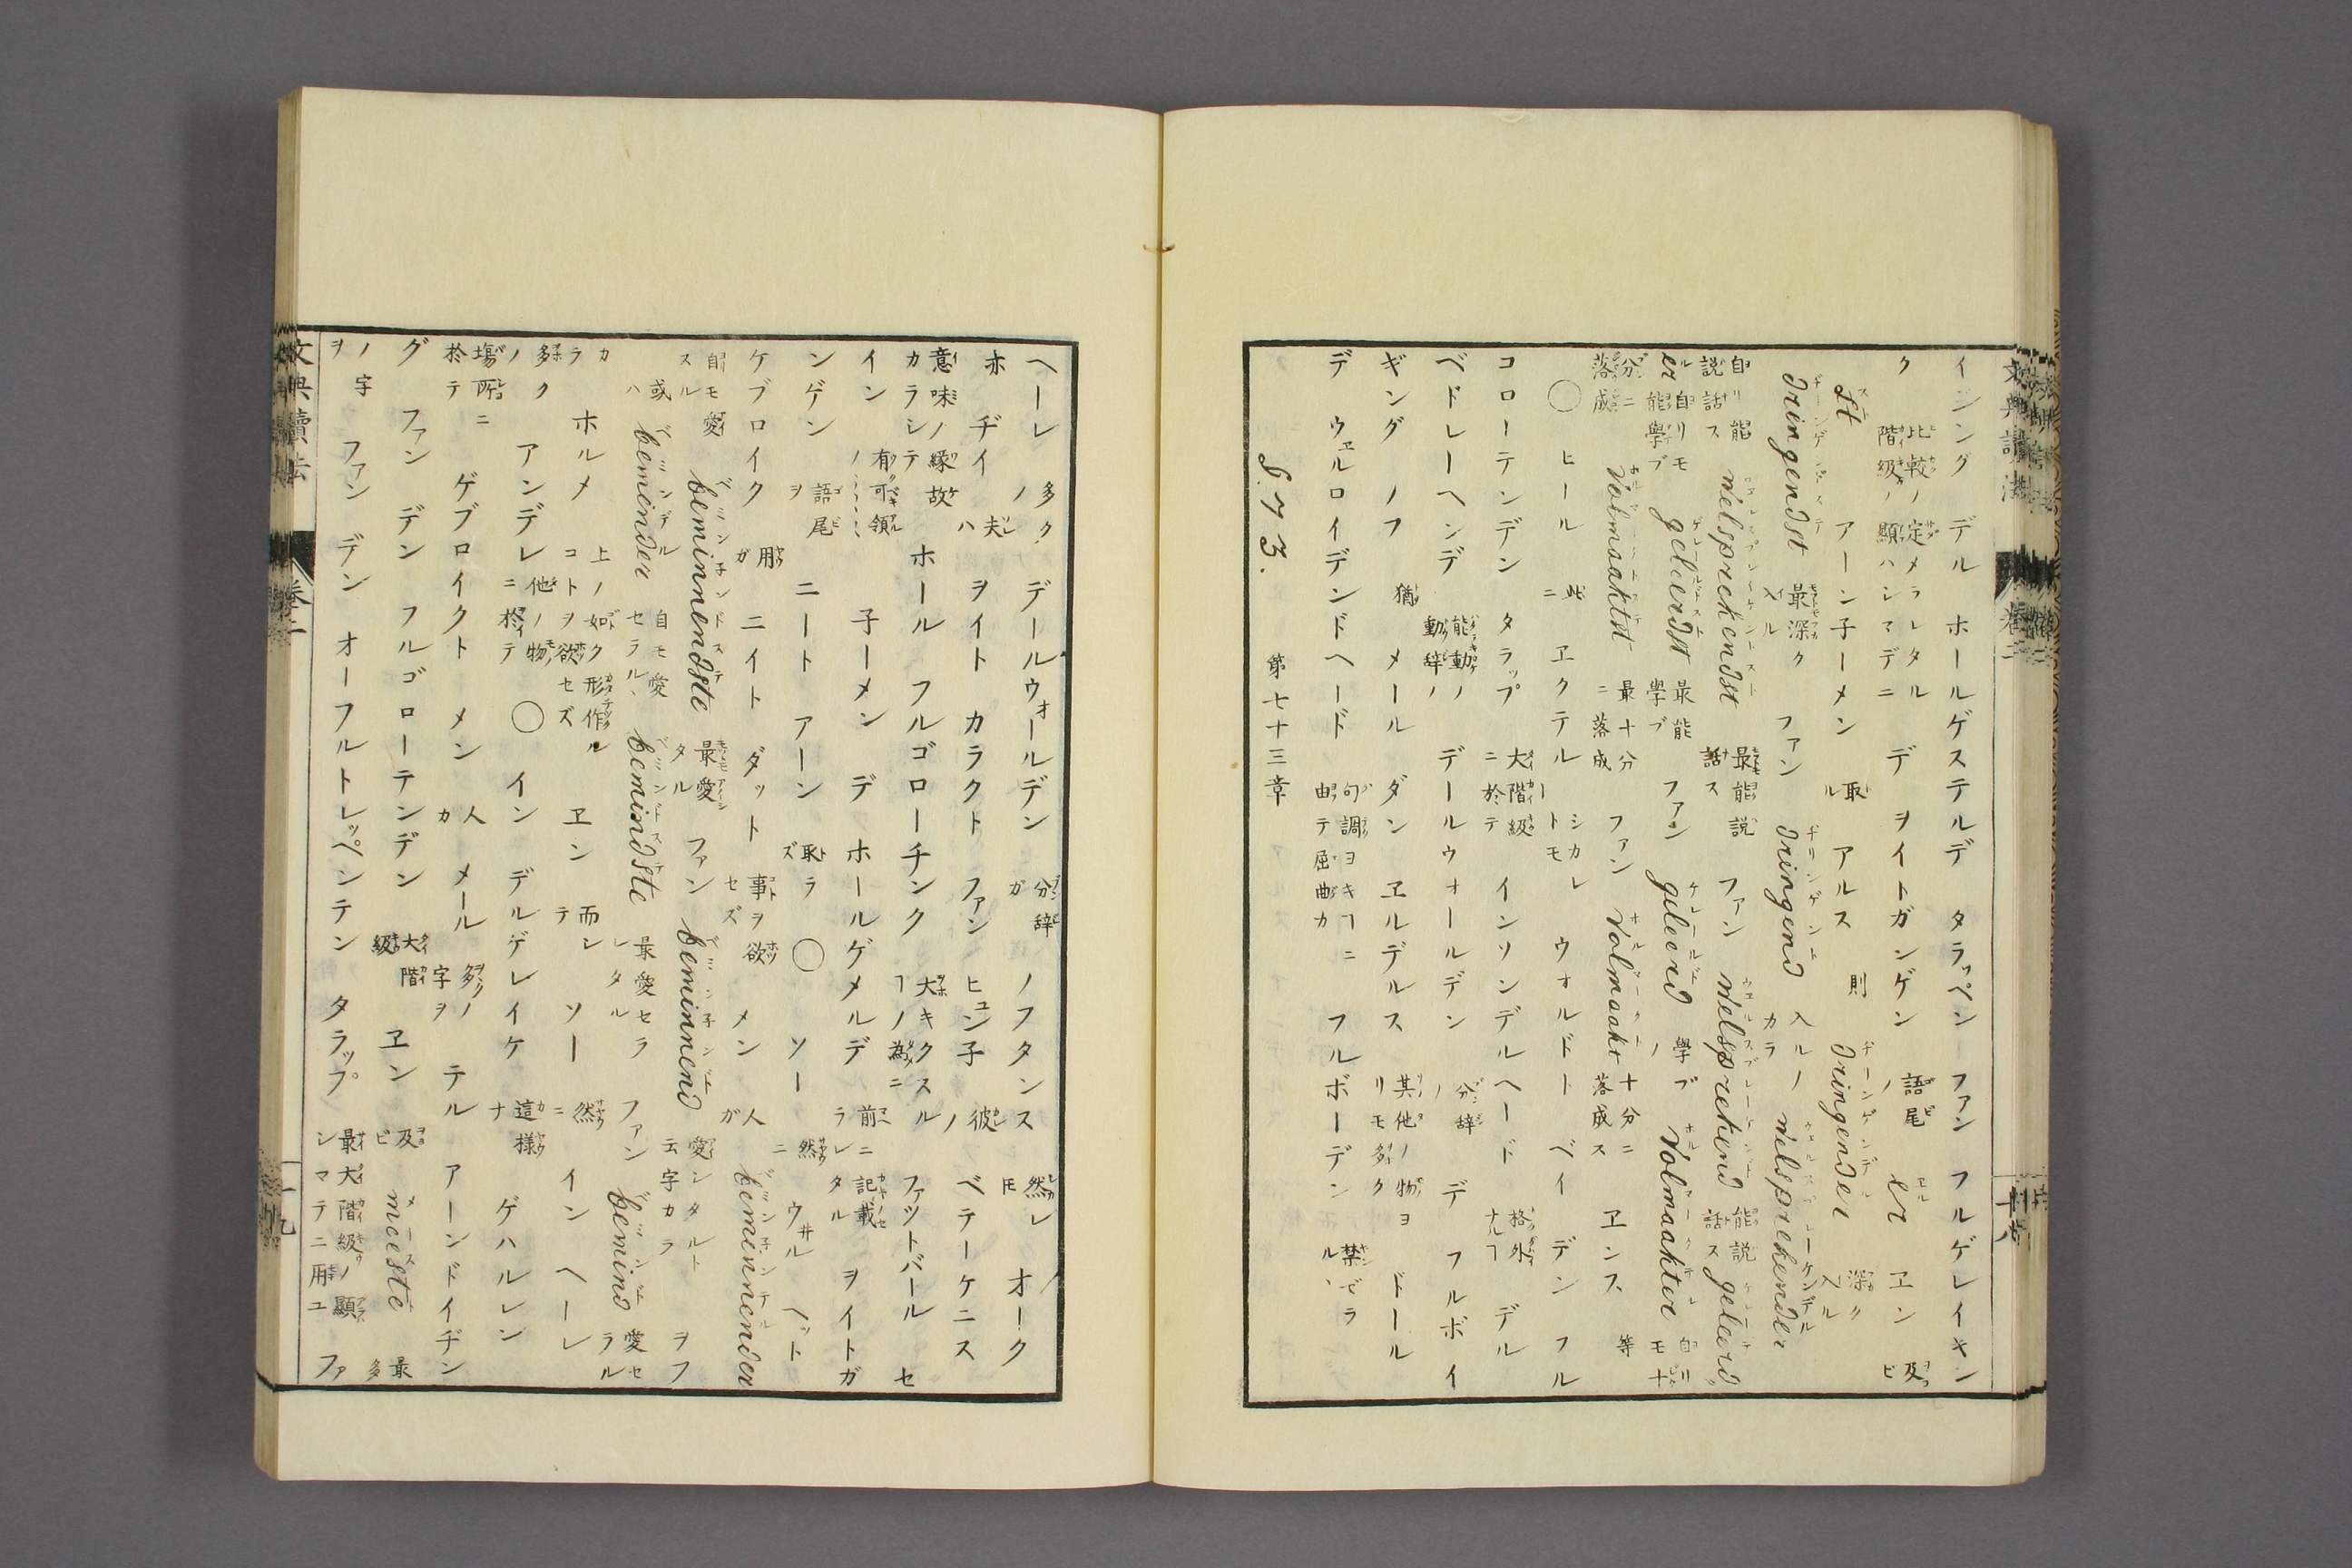 イング デル ホールゲステルデ タラッペン ファン フルゲレイキン
ク 比較ノ定メラレタル階級ノ顕ハシマデニ デ ヲイトガンゲン 語尾ノ er ヱン 及ビ
st アーン子ーメン 取ル アルス 則 dringender 深ク入ル
dringendst 最深ク入ル ファン dringend 入ルノカラ welsprekender
自リ能説話ス welsprekendst 最能説話ス ファン welsprekend 能説話ス geleerd
er 自リモ能學ブ geleerdst 最能學ブ ファン geleerd 學ブノ Volmaakter 自リモ十
分ニ落成 Volmaaktst 最十分ニ落成 ファン Volmaakt 十分ニ落成ス ヱンス 等
〇 ヒール 此ニ ヱクテル シカレトモ ウォルドト ベイ デン フル
コローテンデン タラップ 大階級ニ於テ インソンデルヘード 格外ナルヿ デル
ベドレーヘンデ 能動動辞ノ デールウォールデン 分辞ノ デ フルボイ
ギング ノフ 猶 メール ダン ヱルデルス 其他ノ物ヨリモ多ク ドール
デ ウェルロイデンドヘード 句調ヨキヿニ由テ屈曲カ フルボーデン 禁ゼラル、
§. 73. 第七十三章
ヘーレ 多クノ デールウォールデン 分辞ガ ノフタンス 然レ𪜈 オーク
ホ ヂイ 夫レハ ヲイト カラクト ファン ヒュン子 彼ノ ベテーケニス
意味ノ縁故カラシテ ホール フルゴローチンク 大キクスルヿノ為ニ ファツドバール セ
イン 有可領ノ 子ーメン デ ホールゲメルデ 前ニ記載ラレタル ヲイトガ
ンゲン 語尾ヲ ニート アーン 取ラズ 〇 ソー 然ニ ウヰル ヘット
ケブロイク 用ガ ニイト ダット 事ヲ欲セズ メン 人ガ beminnender
自モ愛スル或ハ beminnendste 最愛タル ファン beminnend 愛ンタルト云字カラ ヲフ
beminder 自モ愛セラル、 bemindste 最愛セラレタル ファン bemind 愛セラル
カラ ホルメ 上ノ如ク形作ルコトヲ欲セズ ヱン 而レテ ソー 然ニ イン ヘーレ
多クノ アンデレ 他ノ物ニ於テ 〇 イン デルゲレイケ 這様ナ ゲハルレン
塲所ニ於テ ゲブロイクト メン 人カ メール 多クノ字ヲ テル アーンドイヂン
グ ファン デン フルゴローテンデン 大階級 ヱン 及ビ meeste 最多
ノ字ヲ ファン デン オーフルトレッペンテン タラップ 最大階級ノ顕シマテニ用ユ ファ